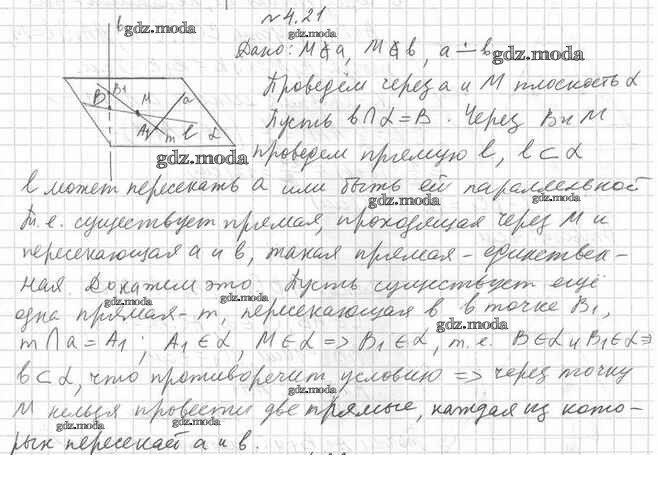 №4.21
Дано: M ∉ a, M ∉ b, a ∸ b
Проведём через a и M плоскость α
Пусть b ∩ α = B. Через B и M
проведем прямую l, l ⊂ α
l может пересекать a или быть ей параллельной
Т.е. существует прямая, проходящая через M и
пересекающая a и b, такая прямая - единствен-
ная. Докажем это. Пусть существует ещё
одна прямая - m, пересекающая b в точке B₁,
m ∩ a = A₁; A₁ ∈ α, M ∈ α => B₁ ∈ α, т.е. B ∈ α и B₁ ∈ α =>
b ⊂ α, что противоречит условию => через точку
M нельзя провести две прямые, каждая из кото-
рых пересекает a и b.
b
B B₁ M a
A₁ m l α
gdz.moda
gdz.moda
gdz.moda
gdz.moda
gdz.moda
gdz.moda
gdz.moda
gdz.moda
gdz.moda
gdz.moda
gdz.moda
gdz.moda
gdz.moda